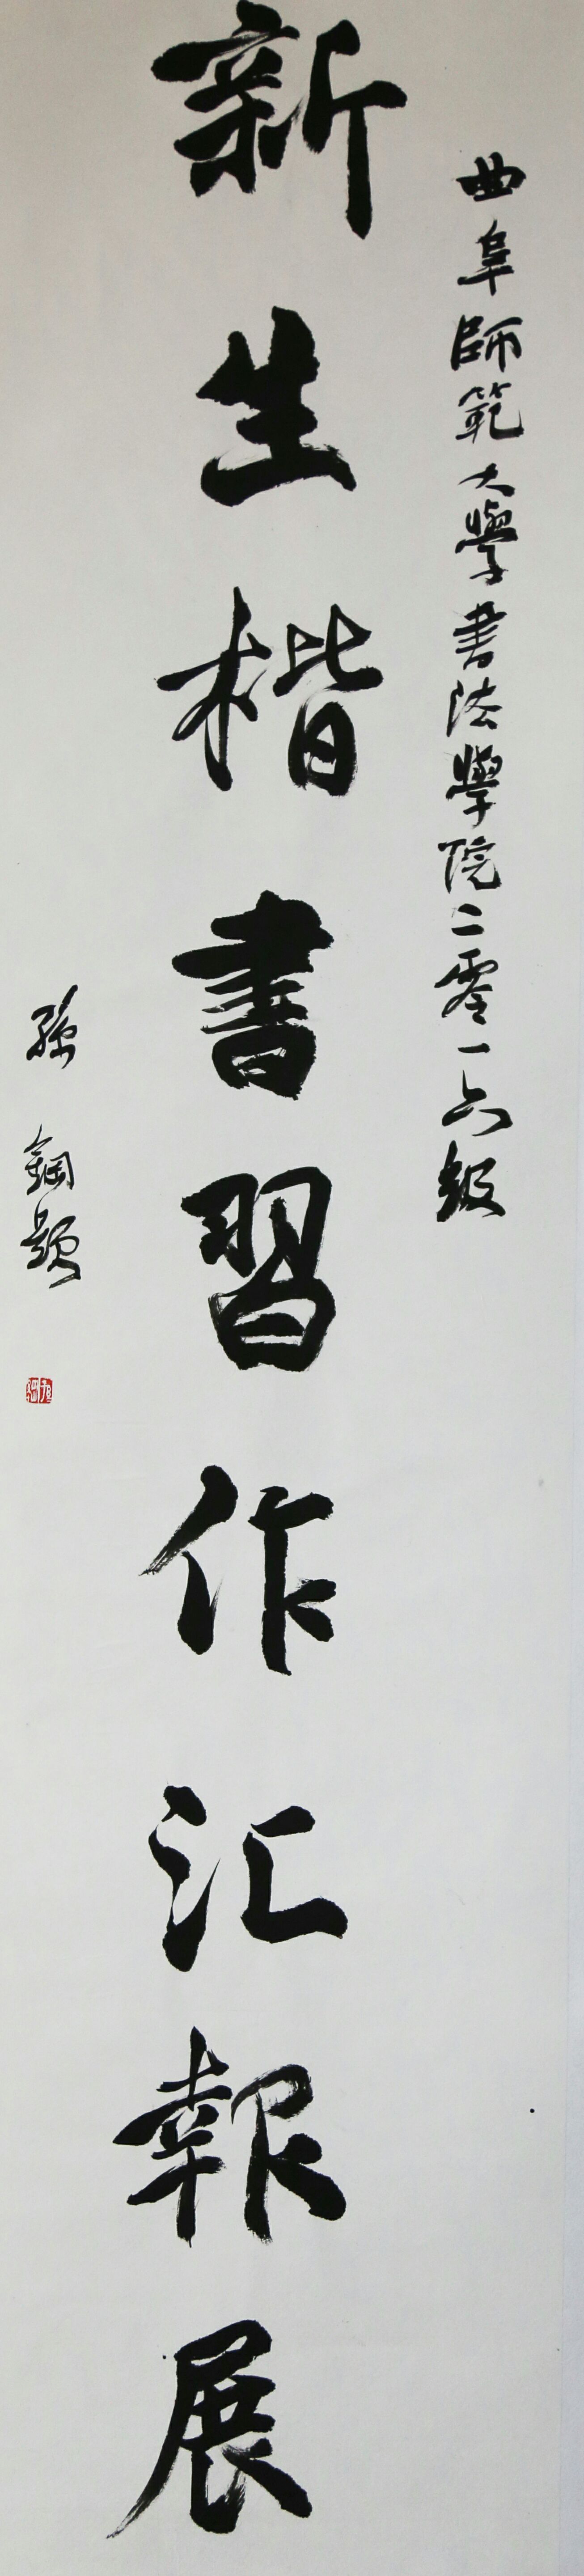 曲阜師範大學書法學院二零一六級
新生楷書習作汇報展
孫鋼題